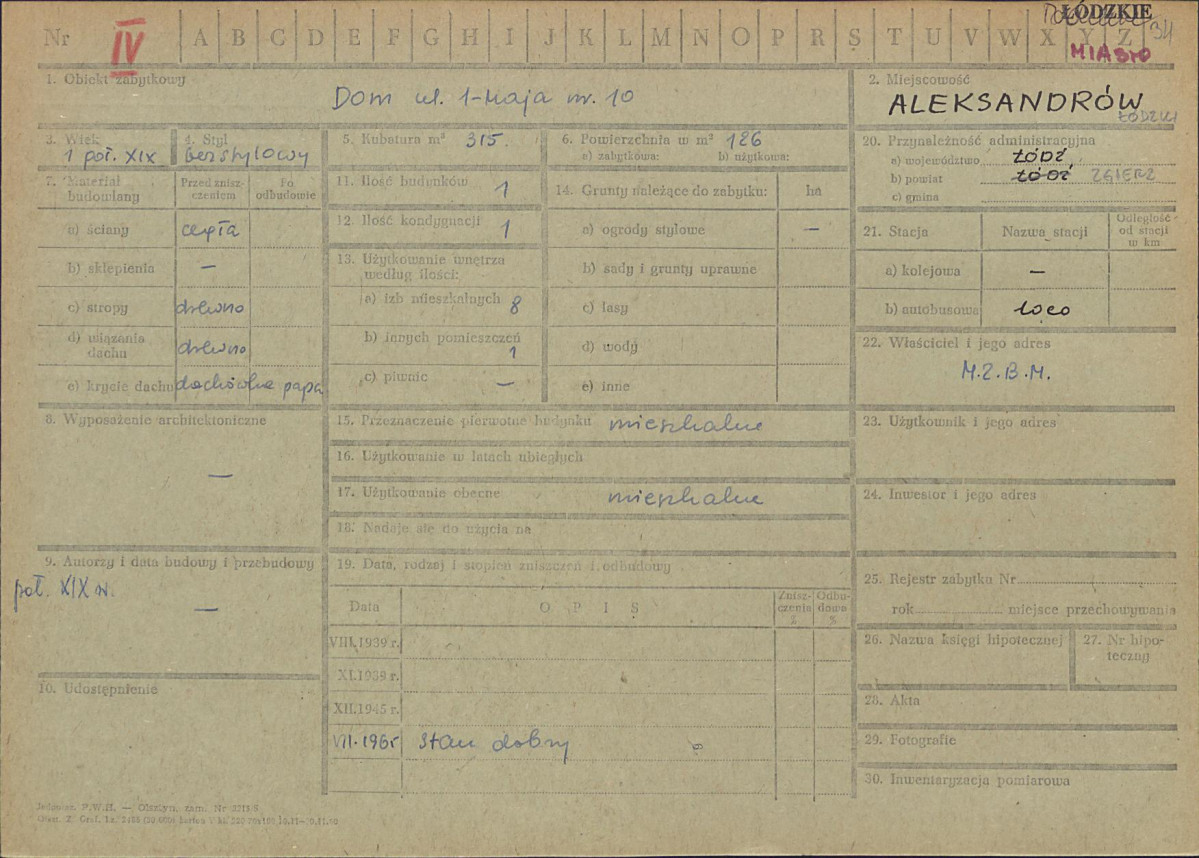 ŁÓDZKIE
34
MIASTO
Nr IV A B C D E F G H I J K L M N O P R S T U V W X Y Z
1. Obiekt zabytkowy
Dom ul. 1-Maja nr. 10
2. Miejscowość
ALEKSANDRÓW
ŁÓDZKI
3. Wiek
1 poł. XIX
4. Styl
bezstylowy
5. Kubatura m³ 315.
6. Powierzchnia w m² 126
a) zabytkowa: b) użytkowa:
7. Materiał budowlany
Przed zniszczeniem
Po odbudowie
a) ściany cegła
b) sklepienia —
c) stropy drewno
d) wiązania dachu drewno
e) krycie dachu dachówka papa
8. Wyposażenie architektoniczne
—
9. Autorzy i data budowy i przebudowy
poł. XIX w.
—
10. Udostępnienie
11. Ilość budynków 1
12. Ilość kondygnacji 1
13. Użytkowanie wnętrza
według ilości:
a) izb mieszkalnych 8
b) innych pomieszczeń
1
c) piwnic —
14. Grunty należące do zabytku: ha
a) ogrody stylowe —
b) sady i grunty uprawne
c) lasy
d) wody
e) inne
15. Przeznaczenie pierwotne budynku mieszkalne
16. Użytkowanie w latach ubiegłych
17. Użytkowanie obecne mieszkalne
18. Nadaje się do użycia na
19. Data, rodzaj i stopień zniszczeń i odbudowy
Data O P I S Zniszczenia % Odbudowa %
VIII.1939 r.
XI.1939 r.
XII.1945 r.
VII.1965 stan dobry
20. Przynależność administracyjna
a) województwo ŁÓDŹ
b) powiat ŁÓDŹ ZGIERZ
c) gmina
21. Stacja Nazwa stacji Odległość od stacji w km
a) kolejowa —
b) autobusowa loco
22. Właściciel i jego adres
M.Z.B.M.
23. Użytkownik i jego adres
24. Inwestor i jego adres
25. Rejestr zabytku Nr
rok miejsce przechowywania
26. Nazwa księgi hipotecznej
27. Nr hipoteczny
28. Akta
29. Fotografie
30. Inwentaryzacja pomiarowa
P.W.H. — Olsztyn, zam. Nr